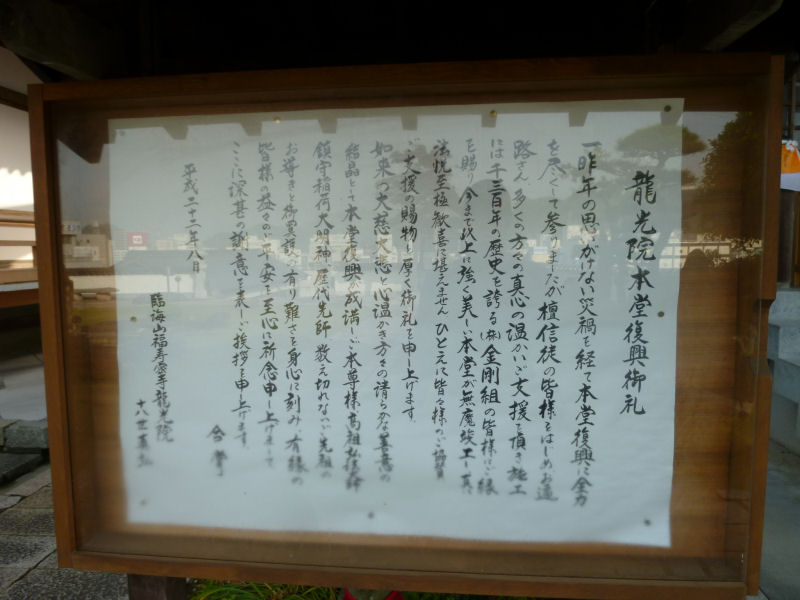 龍光院本堂復興御礼
一昨年の思いがけない災禍を経て本堂復興に全力
を尽くして参りましたが檀信徒の皆様をはじめお遍
路さん多くの方々の真心の温かいご支援を頂き施工
には千三百年の歴史を誇る(株)金剛組の皆様にご縁
を賜り今まで以上に強く美しい本堂が無魔竣工し真に
法悦至極歓喜に堪えませんひとえに皆々様のご協賛
ご支援の賜物と厚く御礼を申し上げます。
如来の大慈大悲と心温かき方々の清らかな善意の
結晶として本堂復興が成満しご本尊様高祖弘法大師
鎮守稲荷大明神歴代先師数え切れないご先祖の
お導きと御冥護の有り難さを身心に刻み有縁の
皆様の益々のご平安を至心に祈念申し上げまして
ここに深甚の謝意を表しご挨拶を申し上げます。
合掌
平成二十二年八月
臨海山福寿寺龍光院
十八世